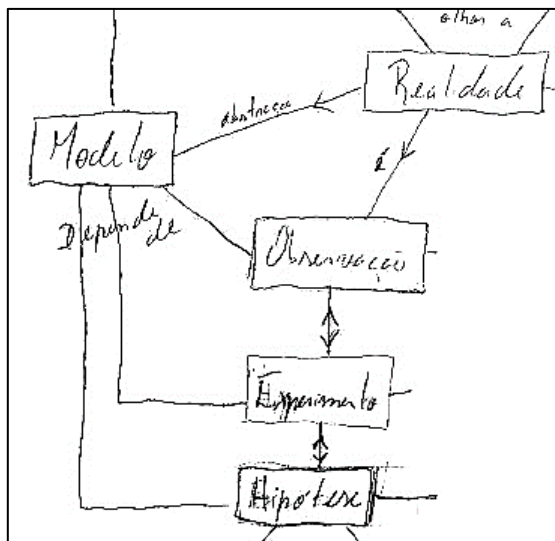 olhar a
Realidade
abstração
Modelo
é
Depende
de
Observação
Experimento
Hipótese